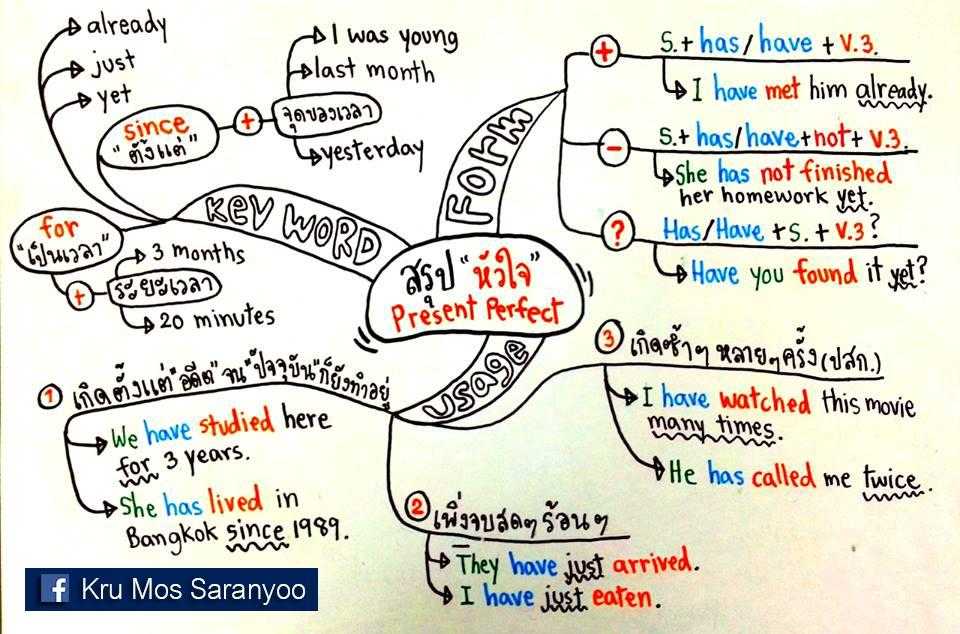 สรุป "หัวใจ"
Present Perfect
KEY WORD
already
just
yet
since
"ตั้งแต่"
+
จุดของเวลา
I was young
last month
yesterday
for
"เป็นเวลา"
+
ระยะเวลา
3 months
20 minutes
FORM
+
S.+ has/have + V.3.
I have met him already.
-
S.+ has/have+not+ V.3.
She has not finished
her homework yet.
?
Has/Have +S. + V.3?
Have you found it yet?
usage
1 เกิดตั้งแต่"อดีต"จน"ปัจจุบัน"ก็ยังทำอยู่
We have studied here
for 3 years.
She has lived in
Bangkok since 1989.
2 เพิ่งจบสดๆร้อนๆ
They have just arrived.
I have just eaten.
3 เกิดซ้ำๆ หลายๆครั้ง(ปสก.)
I have watched this movie
many times.
He has called me twice.
f Kru Mos Saranyoo